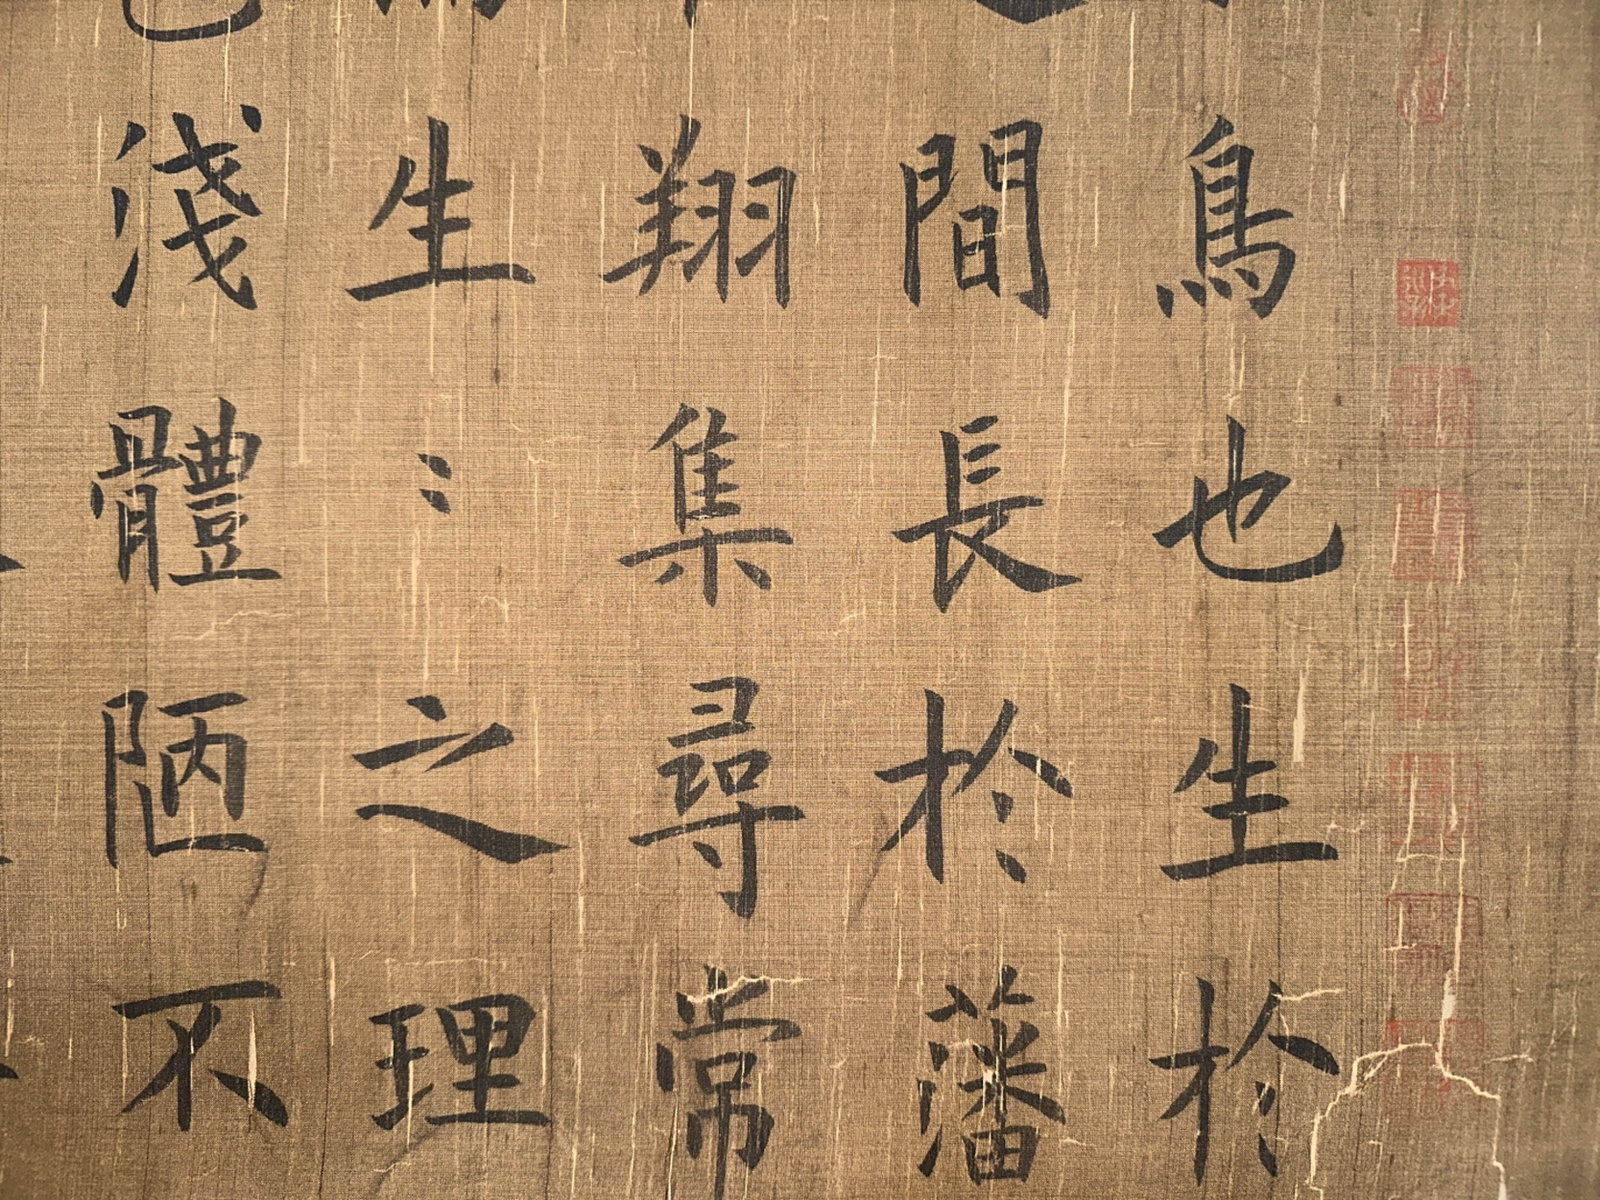 鳥也生於
間長於藩
翔集尋常
生〻之理
淺體陋不